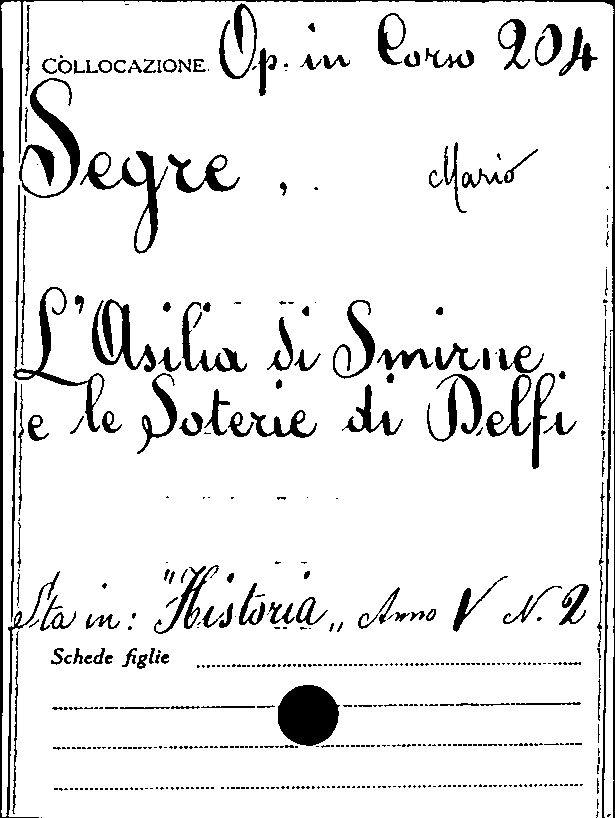 COLLOCAZIONE Op. in Corso 204
Segre, Mario
L'Asilia di Smirne
e le Soterie di Delfi
Sta in: "Historia" Anno V N. 2
Schede figlie